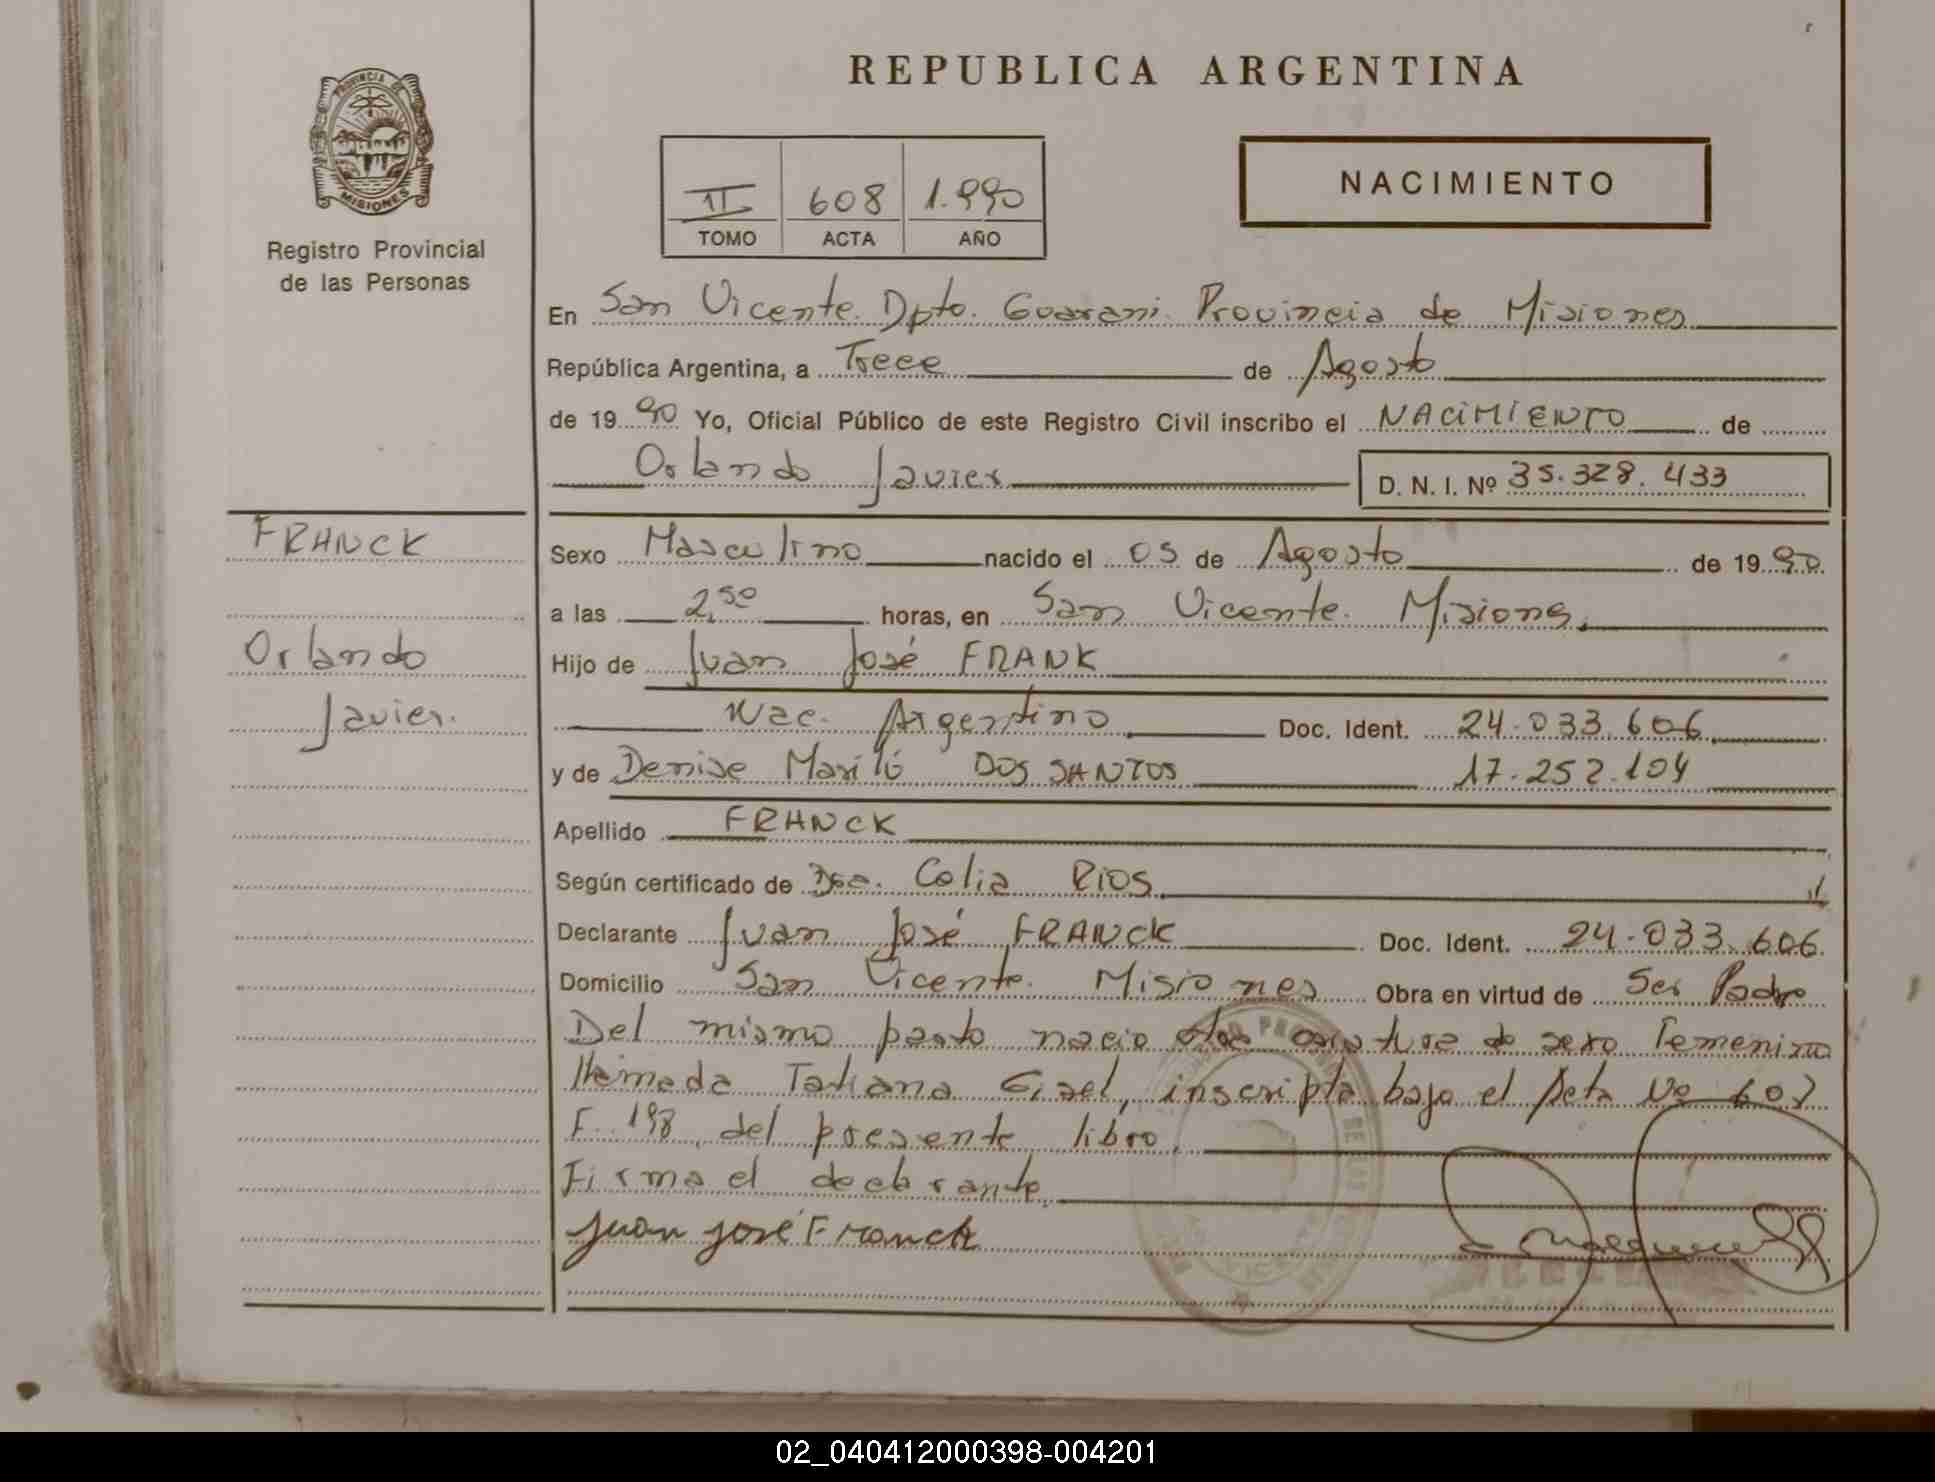 REPUBLICA ARGENTINA
PROVINCIA DE
MISIONES
Registro Provincial
de las Personas
II 608 1.990
TOMO ACTA AÑO
NACIMIENTO
En San Vicente. Dpto. Guarani. Provincia de Misiones
República Argentina, a Trece de Agosto
de 1990 Yo, Oficial Público de este Registro Civil inscribo el NACIMIENTO de
Orlando Javier D. N. I. Nº 35.328.433
FRANCK
Orlando
Javier.
Sexo Masculino nacido el 05 de Agosto de 1990.
a las 2,50 horas, en San Vicente. Misiones.
Hijo de Juan José FRANK
Nac. Argentino Doc. Ident. 24.033.606
y de Denise Marilú DOS SANTOS 17.252.104
Apellido FRANCK
Según certificado de Dra. Celia RIOS
Declarante Juan José FRANCK Doc. Ident. 24.033.606.
Domicilio San Vicente. Misiones Obra en virtud de Ser Padre
Del mismo parto nacio otra criatura de sexo Femenino
llamada Tatiana Gisel, inscripta bajo el Acta Nº 607
F. 198 del presente libro.
Firma el declarante.
Juan José Franck
02_040412000398-004201